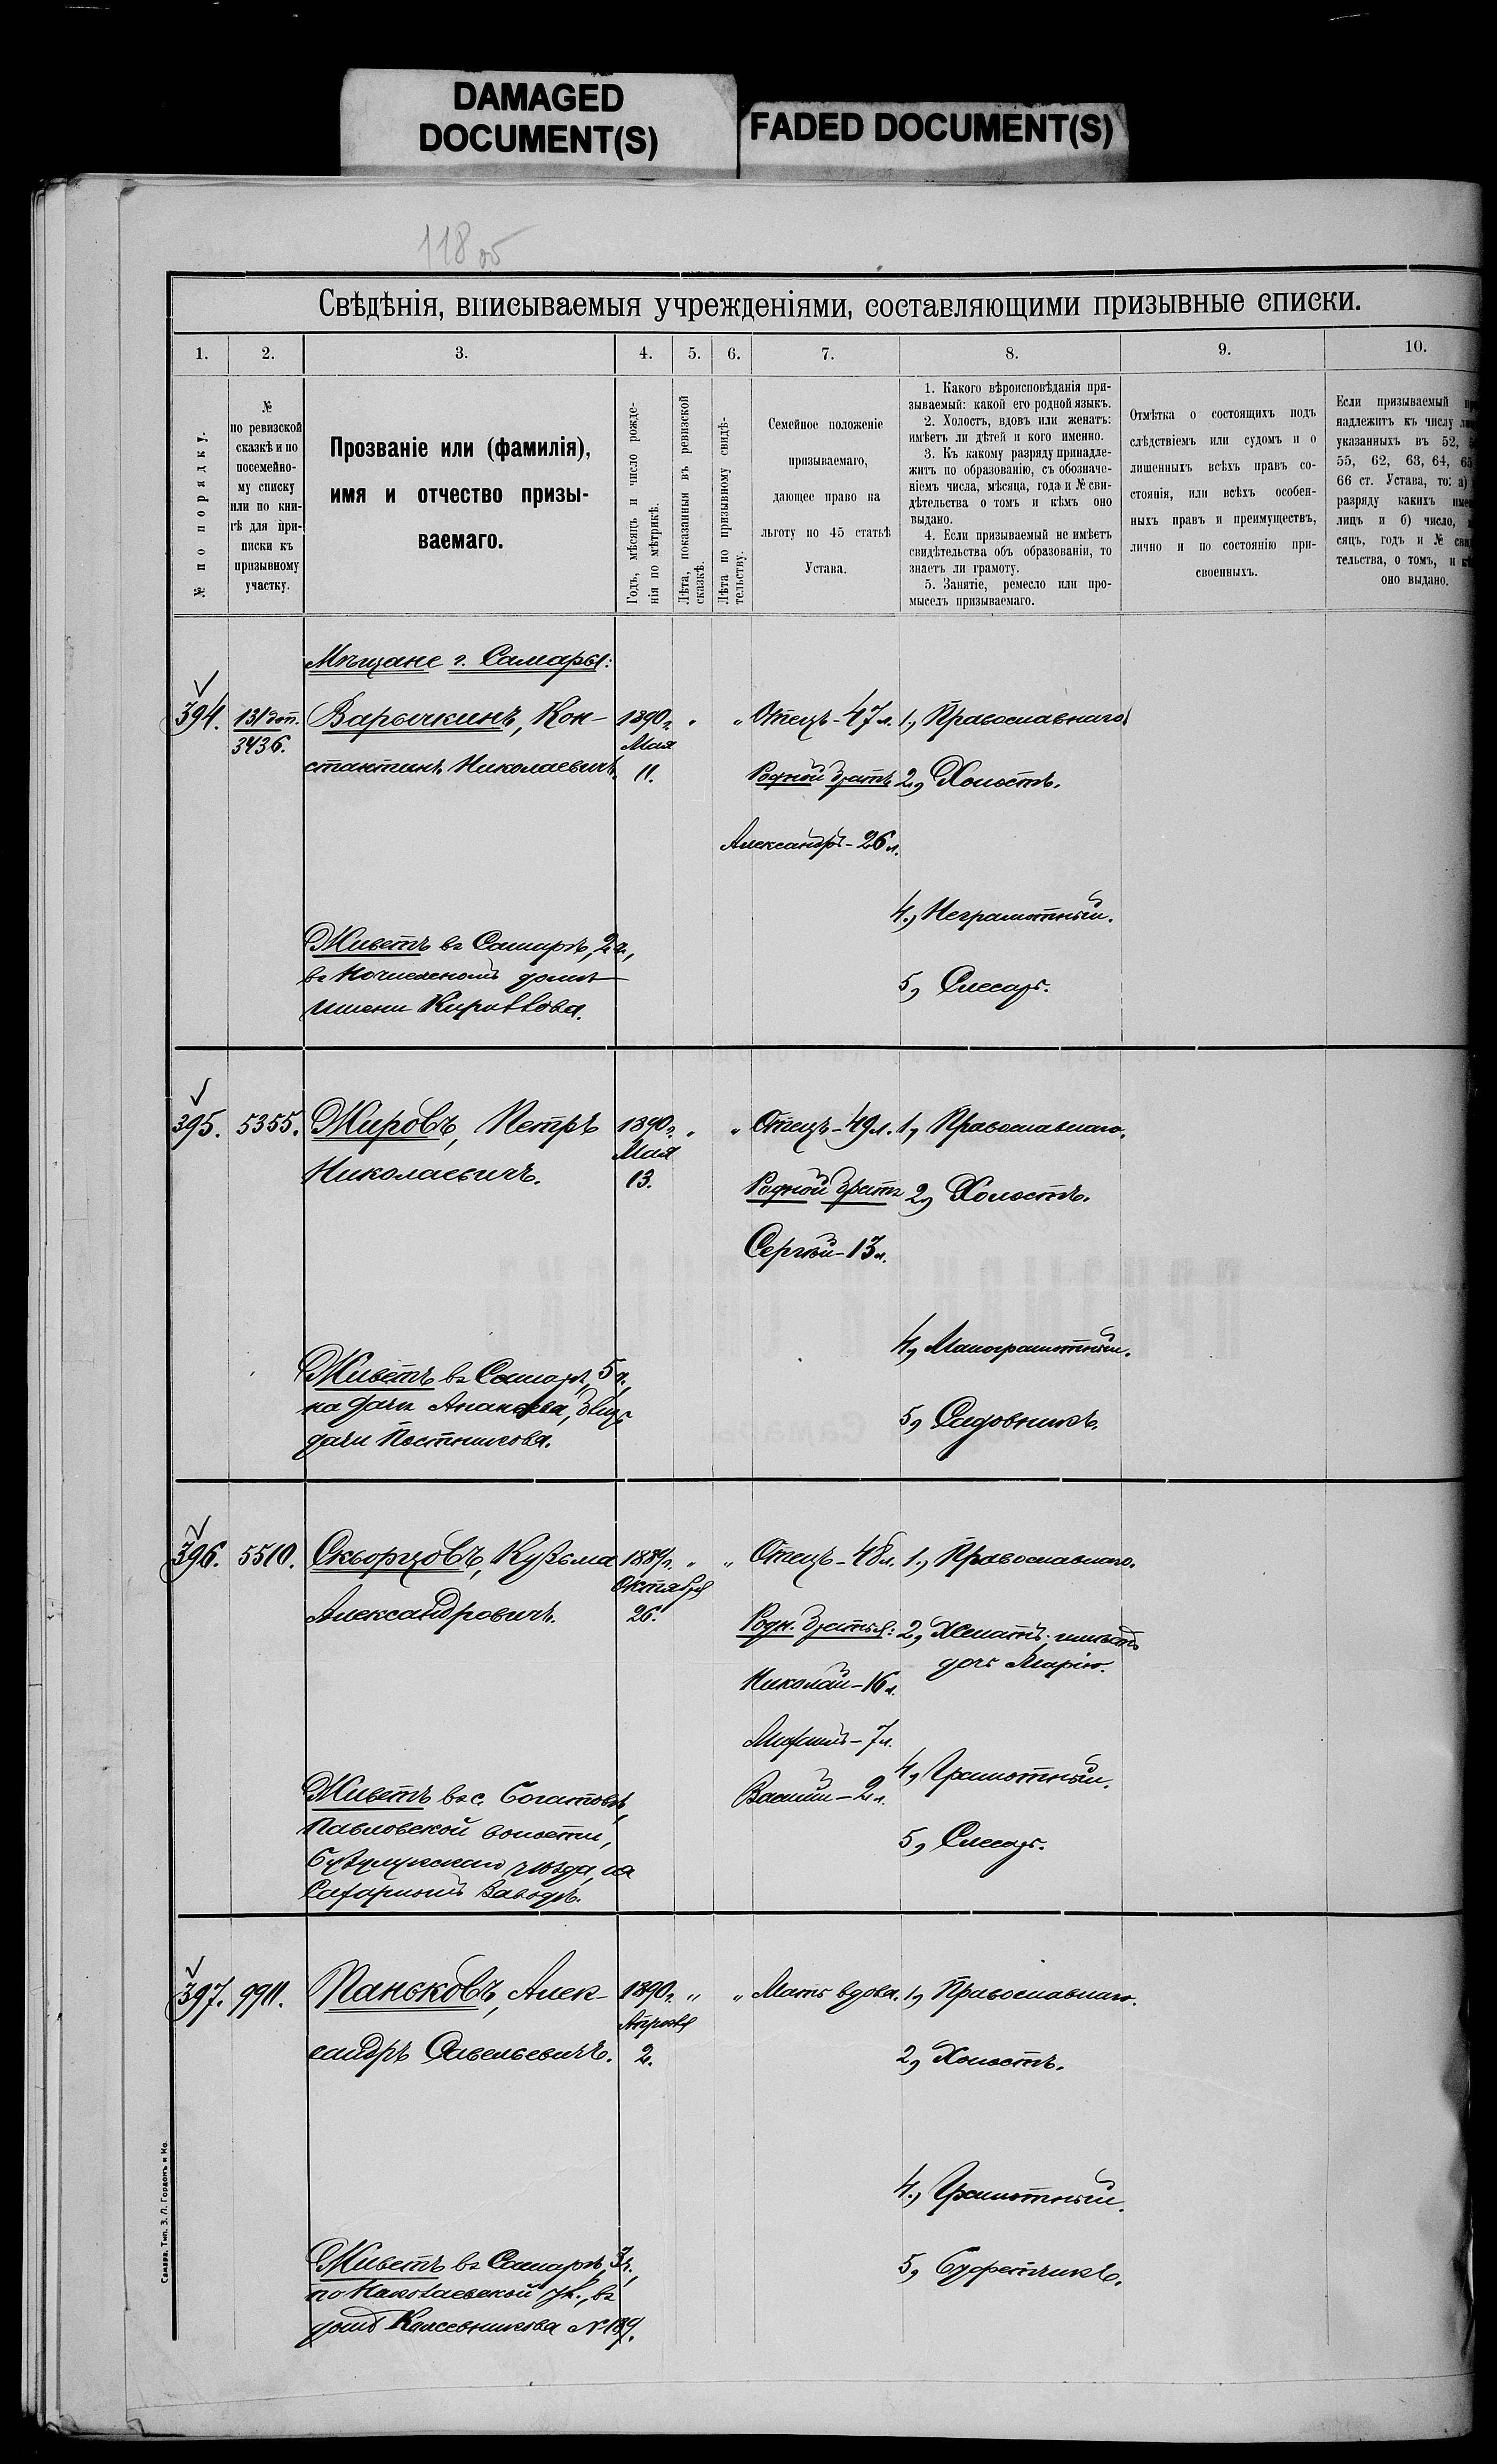 DAMAGED
DOCUMENT(S)
FADED DOCUMENT(S)
118 об
Свѣдѣнія, вписываемыя учрежденіями, составляющими призывные списки.
1.
2.
3.
4.
5.
6.
7.
8.
9.
10.
№ по порядку.
№
по ревизской
сказкѣ и по
посемейно-
му списку
или по кни-
гѣ для при-
писки къ
призывному
участку.
Прозваніе или (фамилія),
имя и отчество призы-
ваемаго.
Годъ, мѣсяцъ и число рожде-
нія по метрикѣ.
Лѣта, показанныя въ ревизской
сказкѣ.
Лѣта по призывному свидѣ-
тельству.
Семейное положеніе
призываемаго,
дающее право на
льготу по 45 статьѣ
Устава.
1. Какого вѣроисповѣданія при-
зываемый: какой его родной языкъ.
2. Холостъ, вдовъ или женатъ:
имѣетъ ли дѣтей и кого именно.
3. Къ какому разряду принадле-
житъ по образованію, съ обозначе-
ніемъ числа, мѣсяца, года и № сви-
дѣтельства о томъ и кѣмъ оно
выдано.
4. Если призываемый не имѣетъ
свидѣтельства объ образованіи, то
знаетъ ли грамоту.
5. Занятіе, ремесло или про-
мыселъ призываемаго.
Отмѣтка о состоящихъ подъ
слѣдствіемъ или судомъ и о
лишенныхъ всѣхъ правъ со-
стоянія, или всѣхъ особен-
ныхъ правъ и преимуществъ,
лично и по состоянію при-
своенныхъ.
Если призываемый
надлежитъ къ числу
указанныхъ въ 52,
55, 62, 63, 64, 65
66 ст. Устава, то: а)
разряду какихъ
лицъ и б) число,
сяцъ, годъ и №
тельства, о томъ, и
оно выдано.
Мѣщане г. Самары:
394.
131 доп.
3436.
Варычкинъ, Кон-
стантинъ Николаевичъ.
1890 г.
Мая
11.
"
"
Отецъ - 47 л.
Родной братъ
Александръ - 26 л.
1, Православнаго.
2, Холостъ.
4., Неграмотный.
5, Слесарь.
Живетъ въ Самарѣ, 2 ч.,
въ Ночлежномъ домѣ
имени
395.
5355.
Жировъ, Петръ
Николаевичъ.
1890 г.
Мая
13.
"
"
Отецъ - 49 л.
Родной братъ
Сергѣй - 13 л.
1, Православнаго.
2, Холостъ.
4, Малограмотный.
5, Садовникъ.
Живетъ въ Самарѣ, 5 ч.,
на дачѣ Ананьева, близъ
дачи Постникова.
396.
5510.
Скворцовъ, Кузьма
Александровичъ.
1889 г.
Октября
26.
"
"
Отецъ - 48 л.
Родн. братья:
Николай - 16 л.
7 л.
Василій - 2 л.
1., Православнаго.
2, Женатъ; имѣетъ
дочь Марію.
4, Грамотный.
5, Слесарь.
Живетъ въ с. Богатовѣ,
Павловской волости,
Бузулукскаго уѣзда, на
Сахарномъ Заводѣ.
397.
9911.
Паньковъ, Алек-
сандръ Савельевичъ.
1890 г.
Апрѣля
2.
"
"
Мать вдова.
1, Православнаго.
2, Холостъ.
4., Грамотный.
5, Буфетчикъ.
Живетъ въ Самарѣ, 3 ч.,
по Николаевской ул., въ
домѣ Кожевникова № 189.
Самара, Тип. З. Л. Гордонъ и Ко.